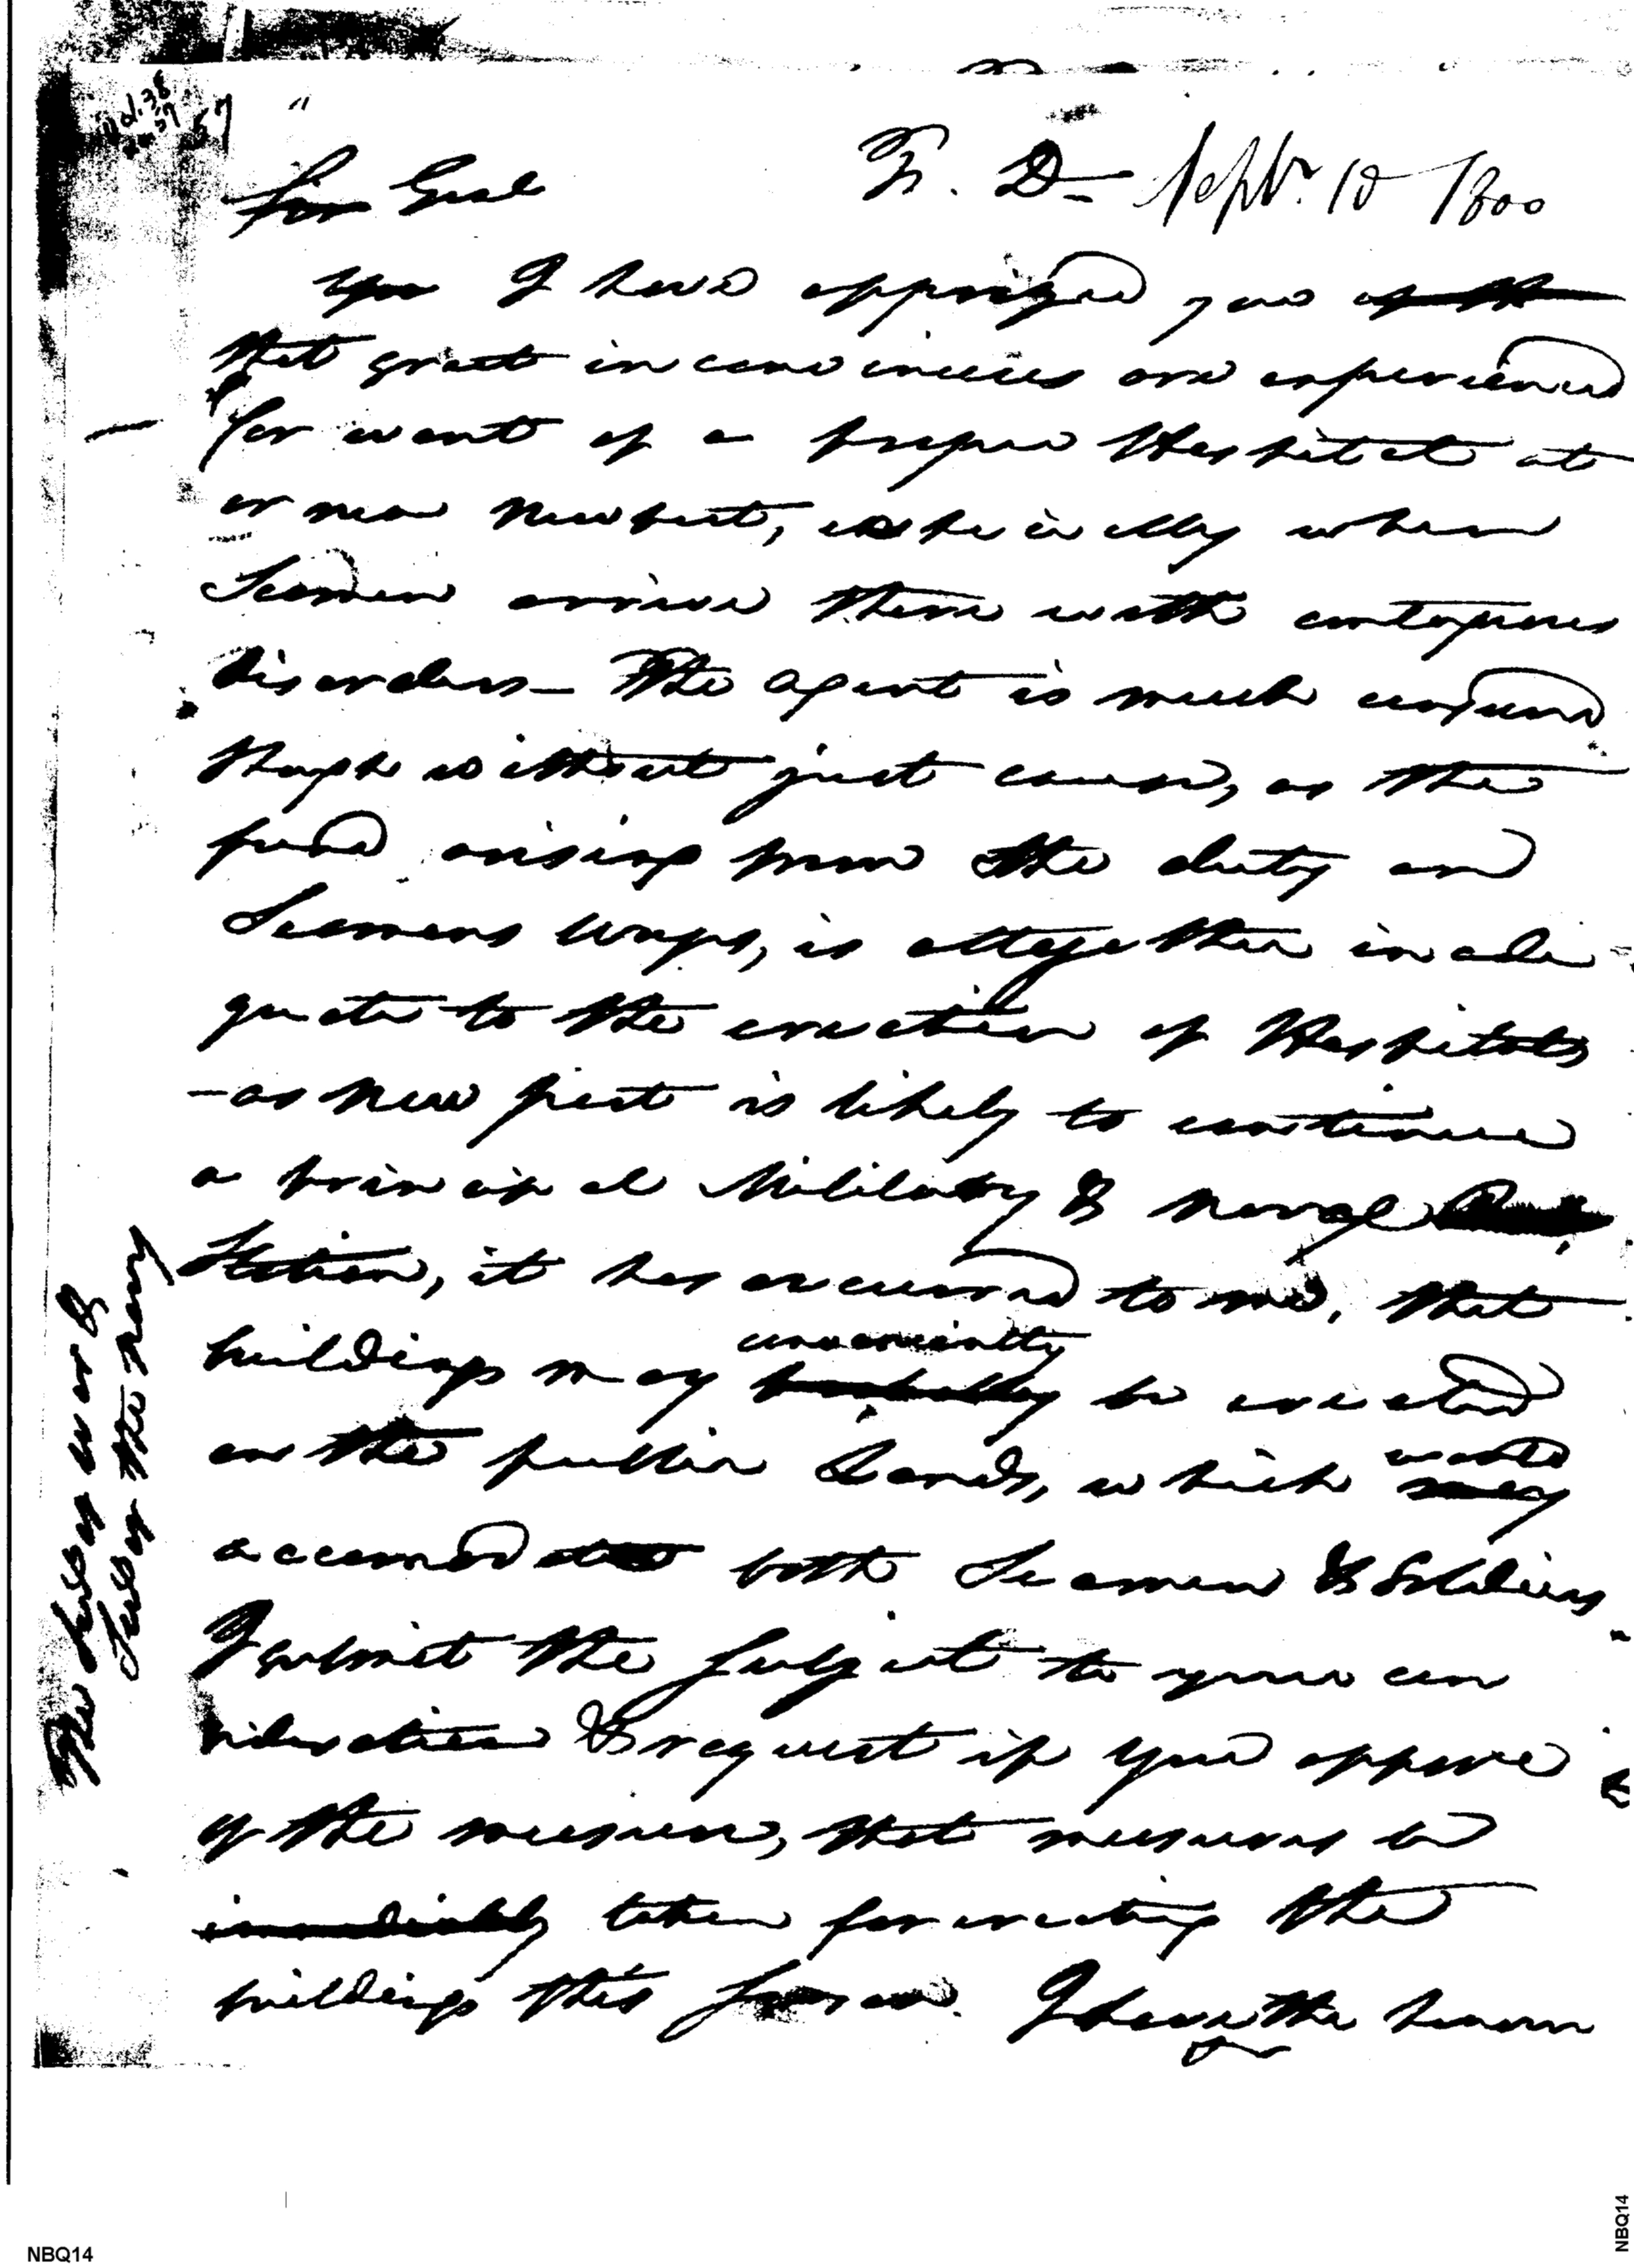 T. D– Septr. 10 1800
I have apprized you of the
that great inconveniences are experienced
for want of a proper Hospital at
or near Newport, especially when
Seamen arrive there with contagious
disorders – The agent is much censured
though without just cause, as the
fund arising from the duty on
Seamens wages, is altogether inade
quate to the erection of Hospitals
– as New port is likely to continue
a principal Military & naval
Station, it has occurred to me, that
conveniently
buildings may probably be erected
on the public Lands, which would
may
accomodate both Seamen & Soldiers
I submit the subject to your con
sideration & request if you approve
of the measure, that measures be
immediately taken for erecting the
buildings this season. I have the honor
The Secy of War &
Secy of the Navy
NBQ14
NBQ14